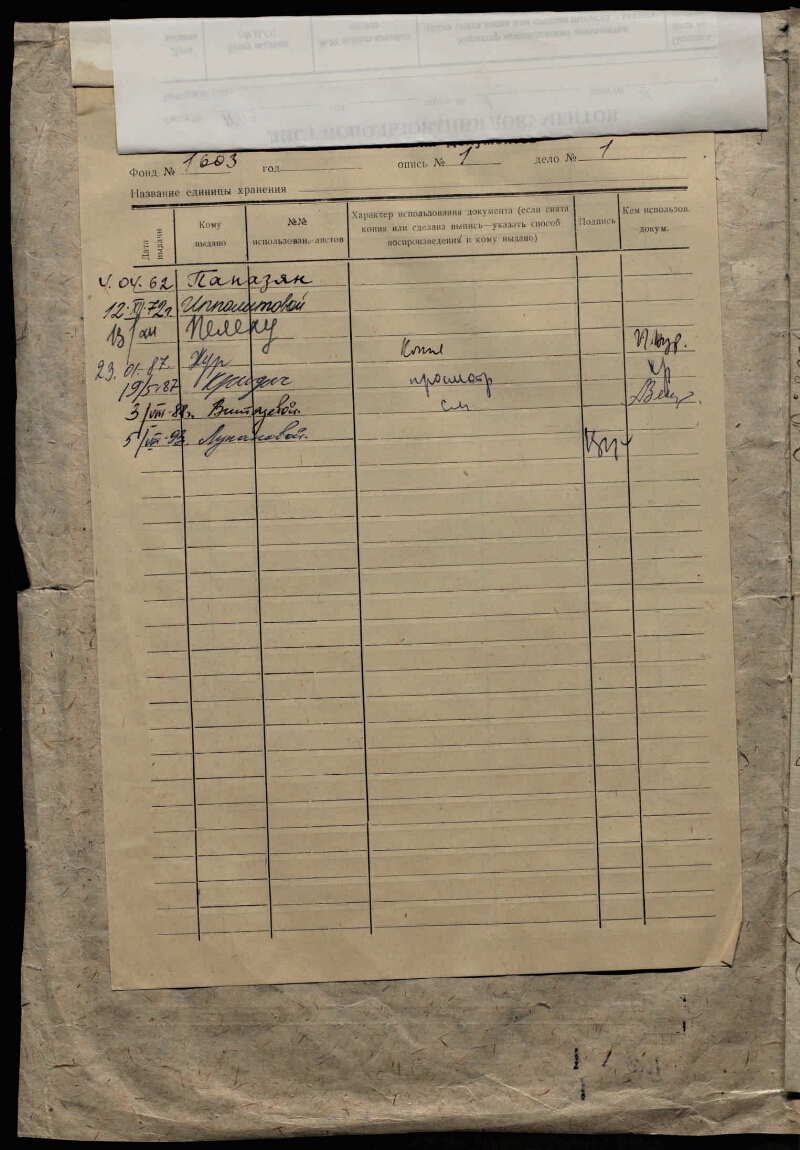 ЛИСТ ИСПОЛЬЗОВАНИЯ ДОКУМЕНТОВ
Фонд № 1603 год опись № 1 дело № 1
Название единицы хранения
Дата выдачи
Кому выдано
№№ использован. листов
Характер использования документа (если снята копия или сделана выпись—указать способ воспроизведения и кому выдано)
Подпись
Кем использов. докум.
4.04.62 Папазян
12.XII.72г. Ипполитовой
13/XII Пелеху
23.01.87. Жур Копия
19/5-87 просмотр
3/VIII-88г. Витязевой см
5/VIII-93. Лукановой